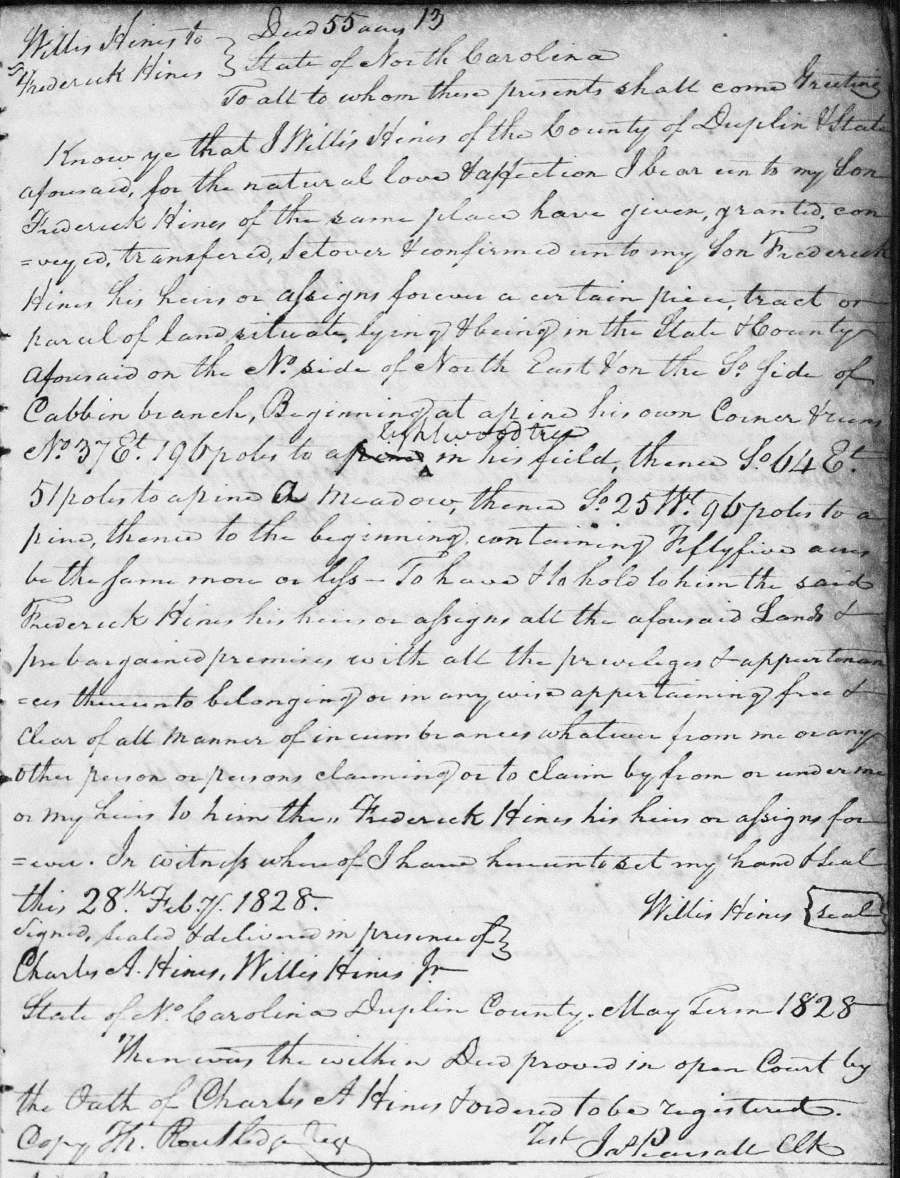 Willis Hines to } Deed 55 acres 13
Frederick Hines } State of North Carolina
To all to whom these presents shall come Greeting
Know ye that I Willis Hines of the County of Duplin & State
aforesaid, for the natural love & affection I bear unto my Son
Frederick Hines of the same place have given, granted, con
=veyed, transfered, Setover & confirmed unto my Son Frederick
Hines his heirs or assigns forever a certain piece, tract or
parcel of land situate, lying & being in the State & County
aforesaid on the No. side of North East & on the So. Side of
Cabbin branch, Beginning at a pine his own Corner & runs
No. 37 Et. 196 poles to a pine lightwood tree in his field, thence So. 64 Et.
51 poles to a pine a meadow, thence So. 25 Wt. 96 poles to a
pine, thence to the beginning, containing Fiftyfive acres
be the same more or less – To have & to hold to him the said
Frederick Hines his heirs or assigns all the aforesaid Lands &
prebargained premises with all the priveleges & appurtenan
=ces thereunto belonging or in any wise appertaining free &
Clear of all manner of incumbrances whatever from me or any
other person or persons claiming or to claim by from or under me
or my heirs to him the „ Frederick Hines his heirs or assigns for
=ever. In witness whereof I have hereunto set my hand & Seal
this 28.th Feby. 1828. Willis Hines {seal}
Signed, Sealed & delivered in presence of }
Charles A. Hines, Willis Hines Jr
State of No. Carolina Duplin County. May Term 1828
Then was the within Deed proved in open Court by
the Oath of Charles A Hines & ordered to be registered.
Copy Th. Routledge Reg Test Jas Pearsall Clk